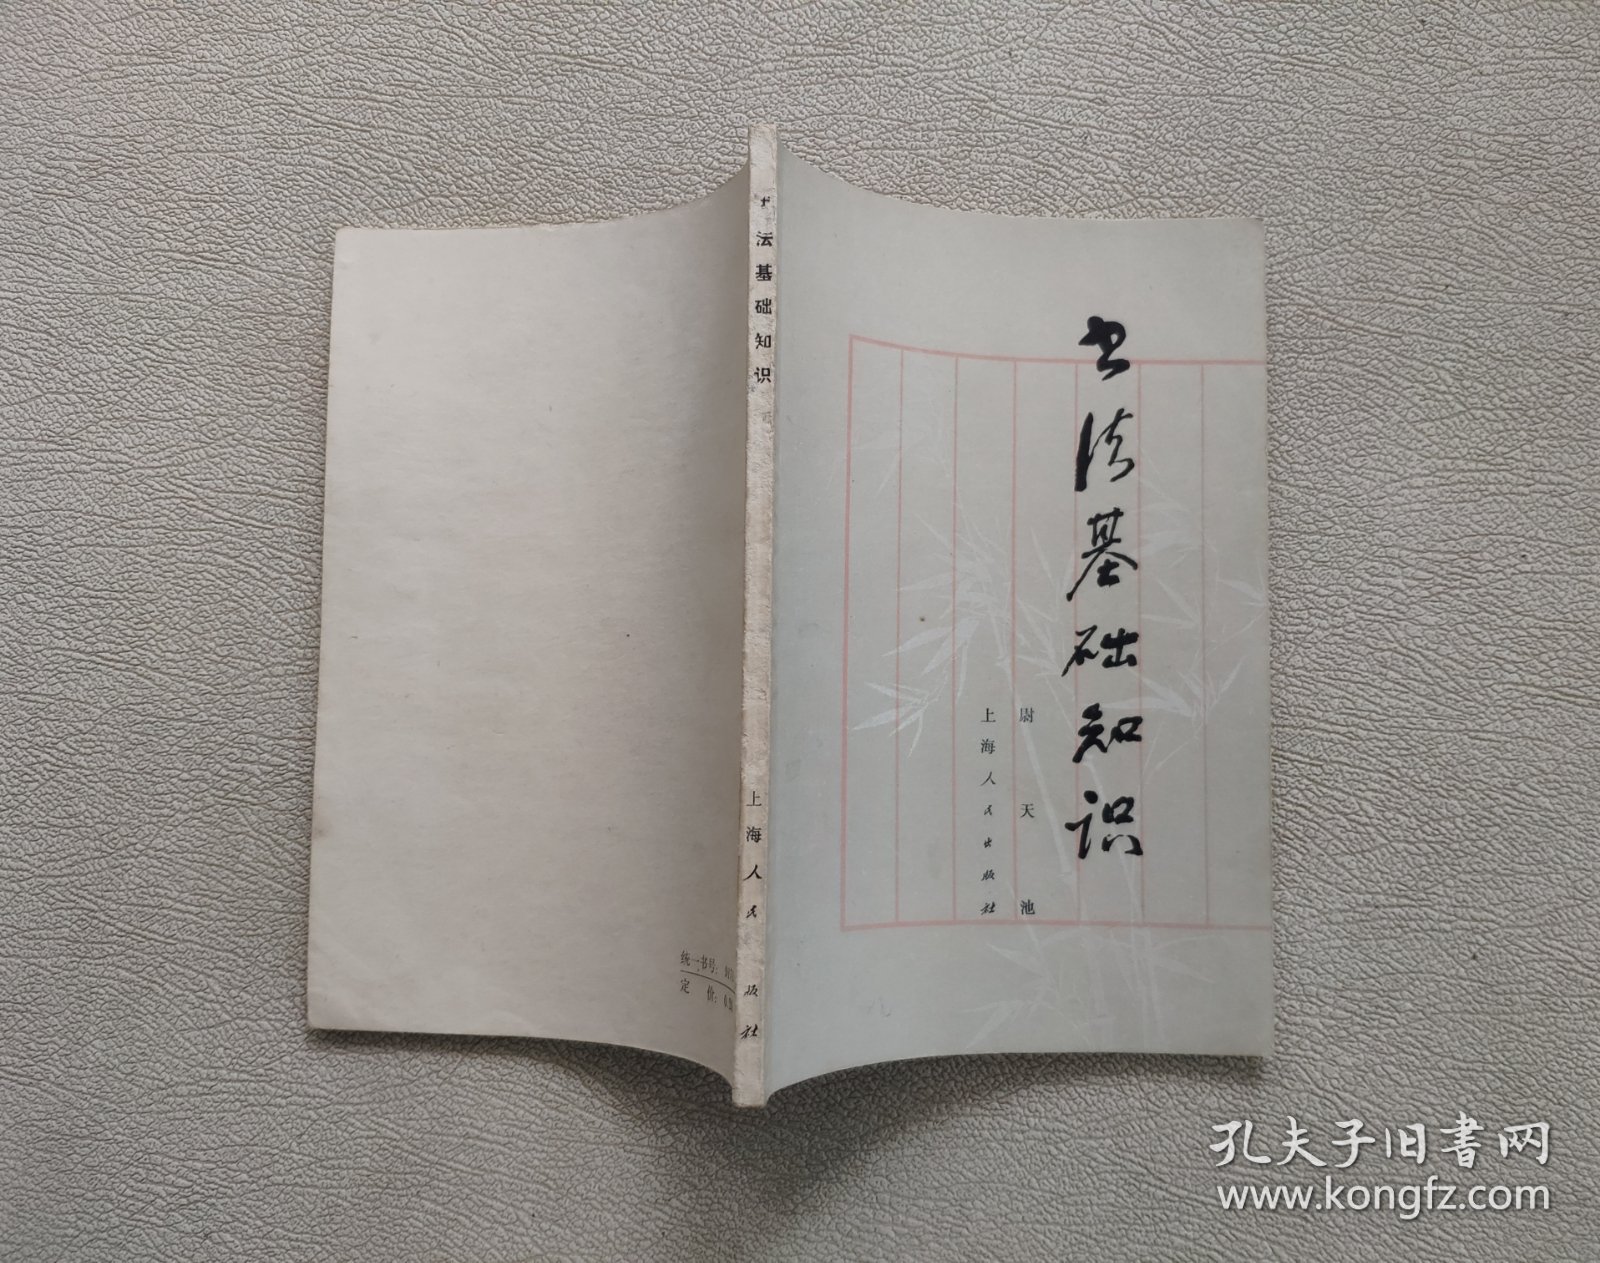 书法基础知识
尉天池
上海人民出版社
法基础知识
上海人民
版社
统一书号：
定 价：
孔夫子旧書网
www.kongfz.com